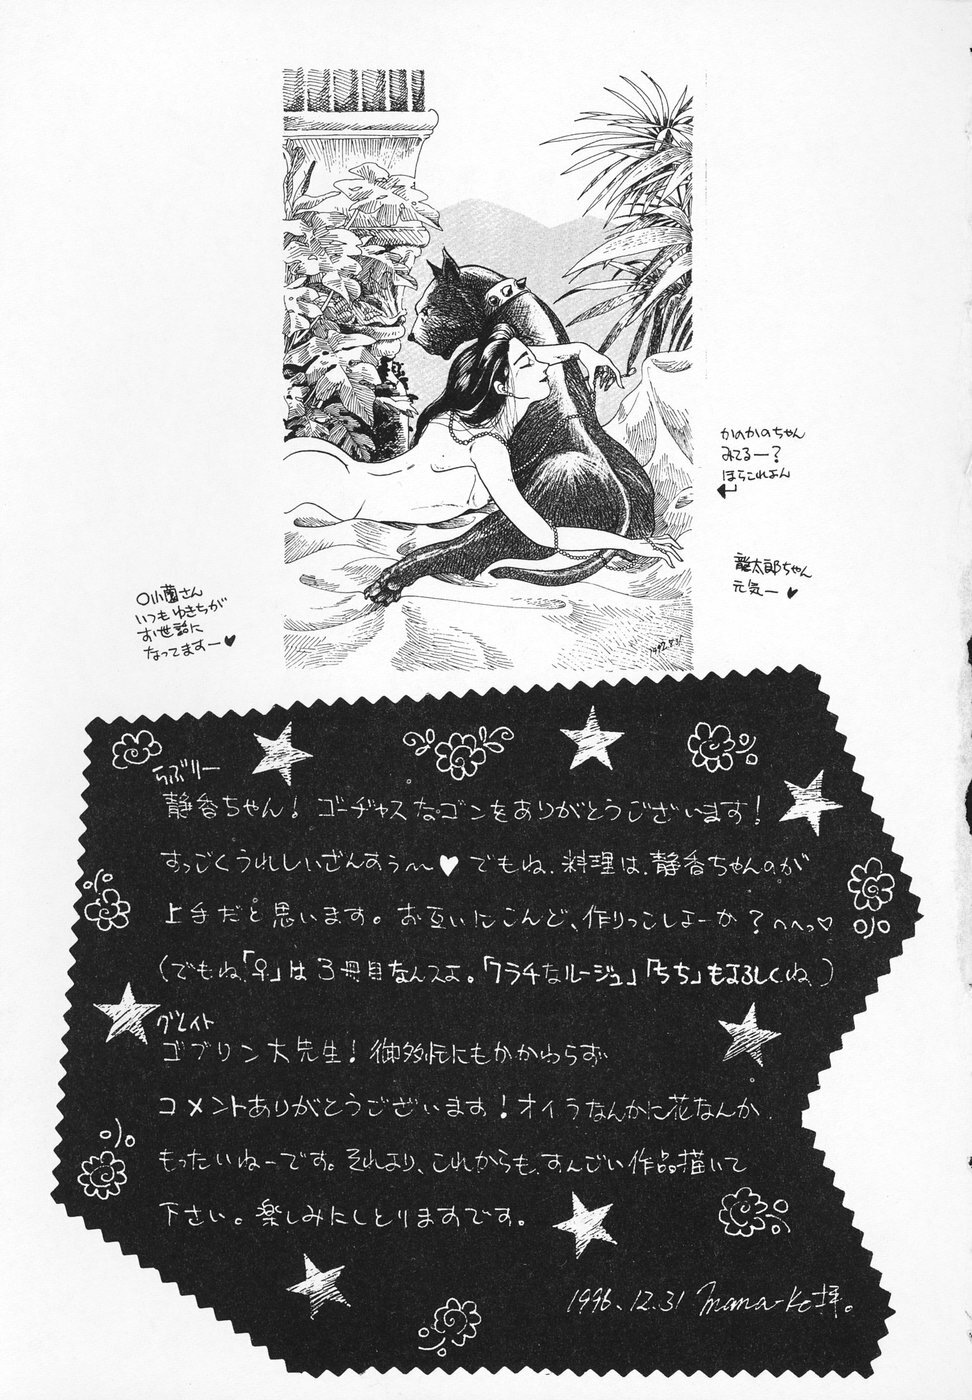 かのかのちゃん
みてるー?
ほらこれよん
龍太郎ちゃん
元気ー♥
いつもゆきちが
お世話に
なってますー♥
らぶりー
静香ちゃん! ゴーヂャスなゴンをありがとうございます!
すっごくうれしいざんすぅ〜♥でもね、料理は、静香ちゃんのが
上手だと思います。お互いにこんど、作りっこしよーか?へへっ♡
(でもね「♀」は3冊目なんスよ。「フラチなルージュ」「うち」もよろしくね)
グレイト
ゴブリン大先生! 御多忙にもかかわらず
コメントありがとうございます! オイラなんかに花なんか
もったいねーです。それより、これからも、すんごい作品描いて
下さい。楽しみにしとりますです。
1996.12.31 mana-Ko拝。